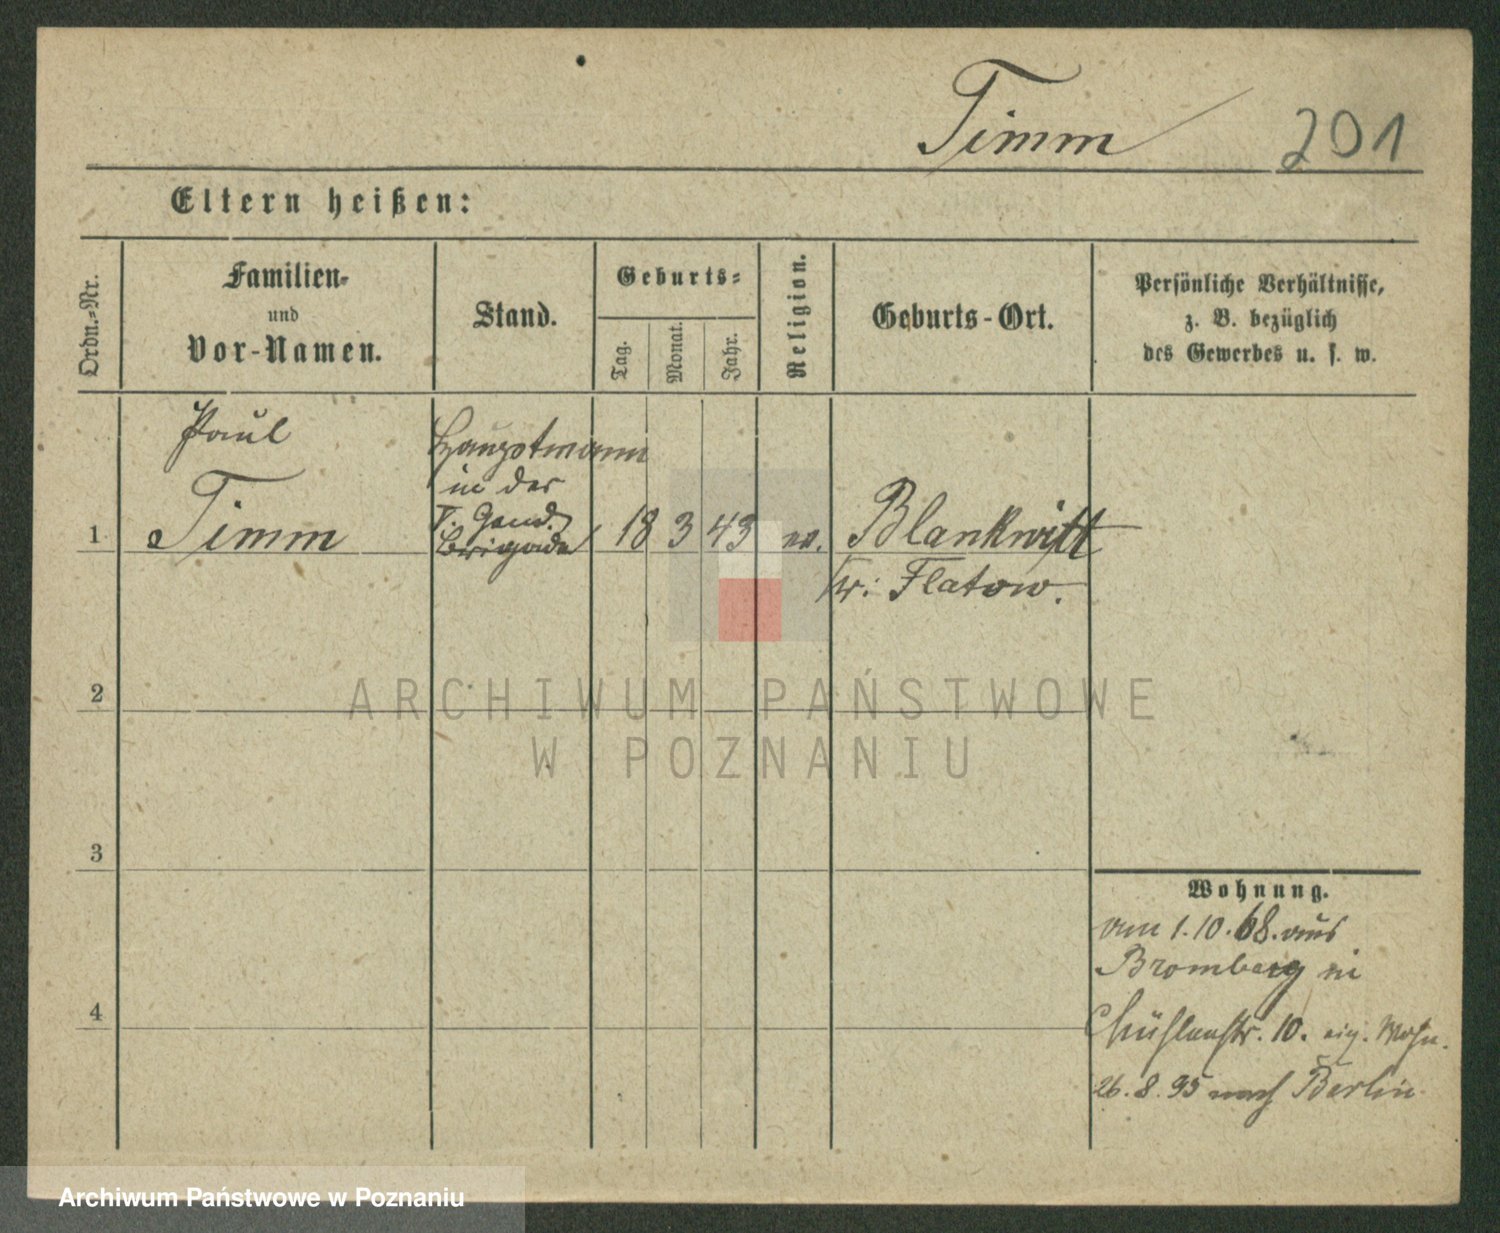 Timm 201
Eltern heißen:
Ordn.-Nr.
Familien-
und
Vor-Namen.
Stand.
Geburts-
Tag.
Monat.
Jahr.
Religion.
Geburts-Ort.
Persönliche Verhältnisse,
z. B. bezüglich
des Gewerbes u. s. w.
Paul
Timm
Hauptmann
in der
Gend.
Brigade
1
18 3 43 ev. Blankwitt
Kr. Flatow.
2
ARCHIWUM PAŃSTWOWE
W POZNANIU
3
4
Wohnung.
am 1.10.68. aus
Bromberg in
Mühlenstr. 10. eig. Wohn.
26.8.95 nach Berlin.
Archiwum Państwowe w Poznaniu